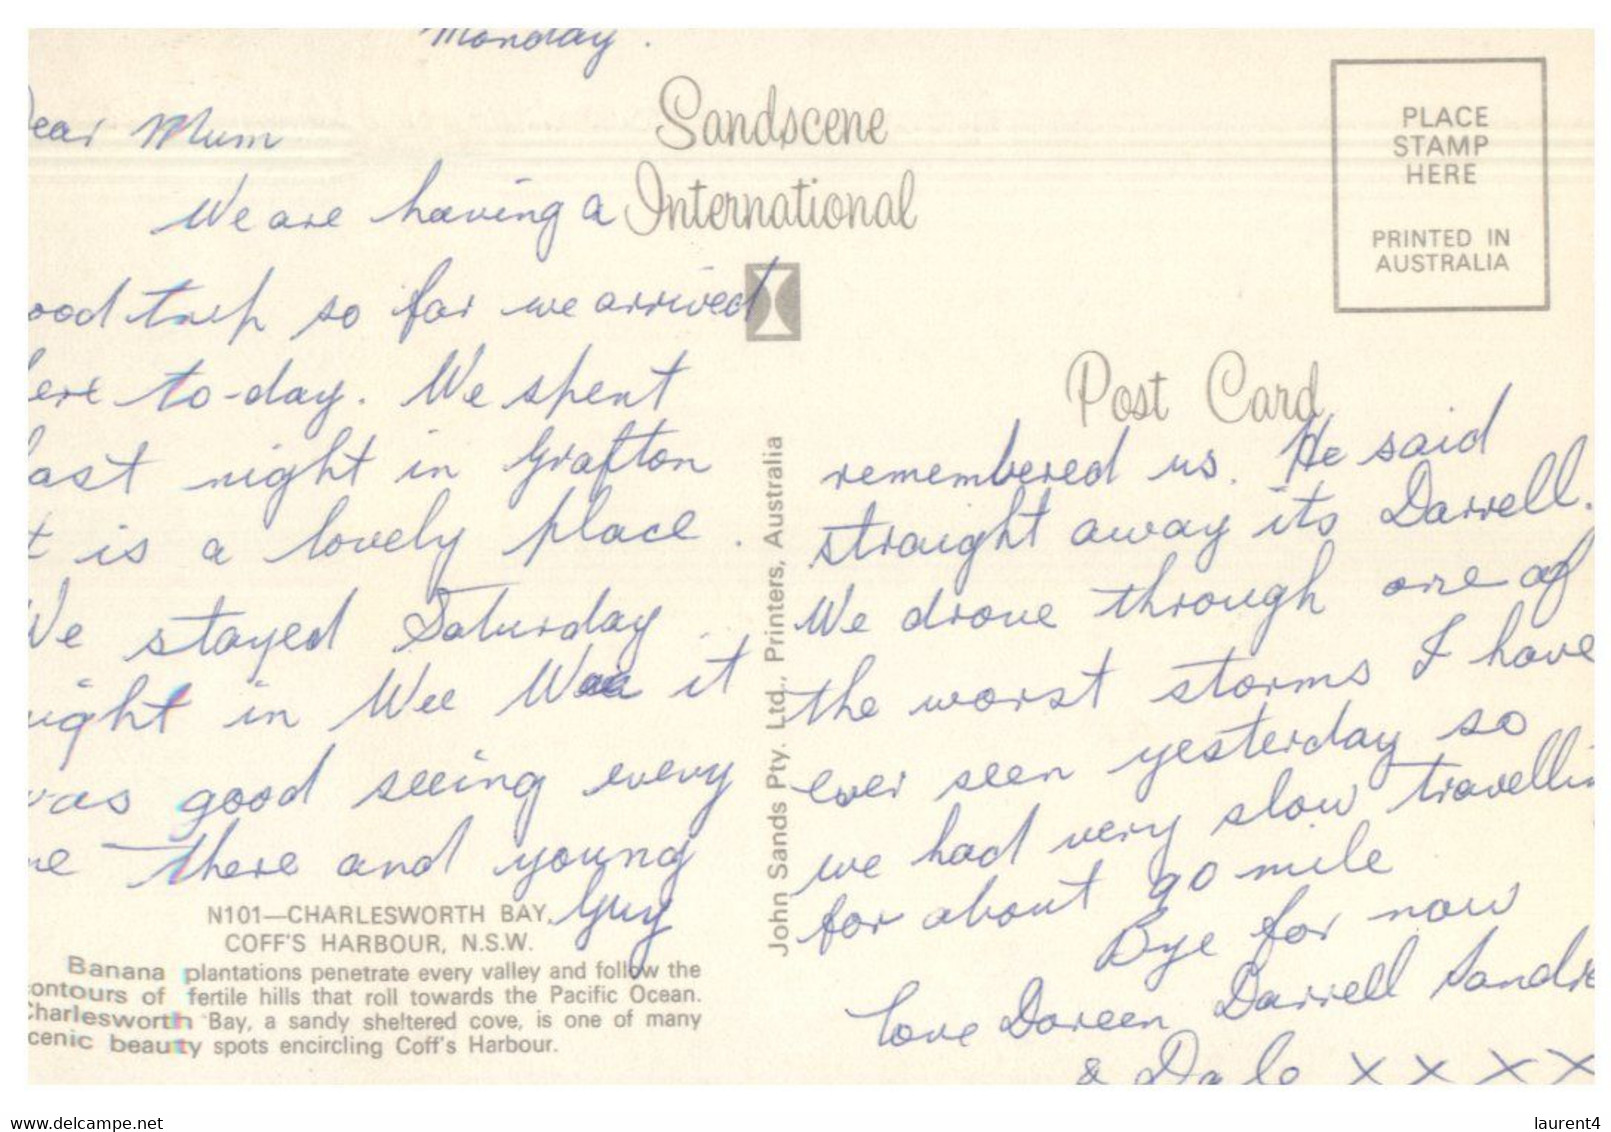 Monday.
Dear Mum
We are having a
ood trip so far we arrived
ere to-day. We spent
last night in Grafton
t is a lovely place.
We stayed Saturday
ight in Wee Waa it
was good seeing every
ne there and young
Guy
N101—CHARLESWORTH BAY,
COFF'S HARBOUR, N.S.W.
Banana plantations penetrate every valley and follow the
contours of fertile hills that roll towards the Pacific Ocean.
Charlesworth Bay, a sandy sheltered cove, is one of many
cenic beauty spots encircling Coff's Harbour.
Sandscene
International
John Sands Pty. Ltd., Printers, Australia
PLACE
STAMP
HERE
PRINTED IN
AUSTRALIA
Post Card
remembered us. He said
straight away its Darrell.
We drove through one of
the worst storms I have
ever seen yesterday so
we had very slow travellin
for about 90 mile
Bye for now
love Doreen Darrell Sandra
& Dale x x x x
www.delcampe.net
laurent4